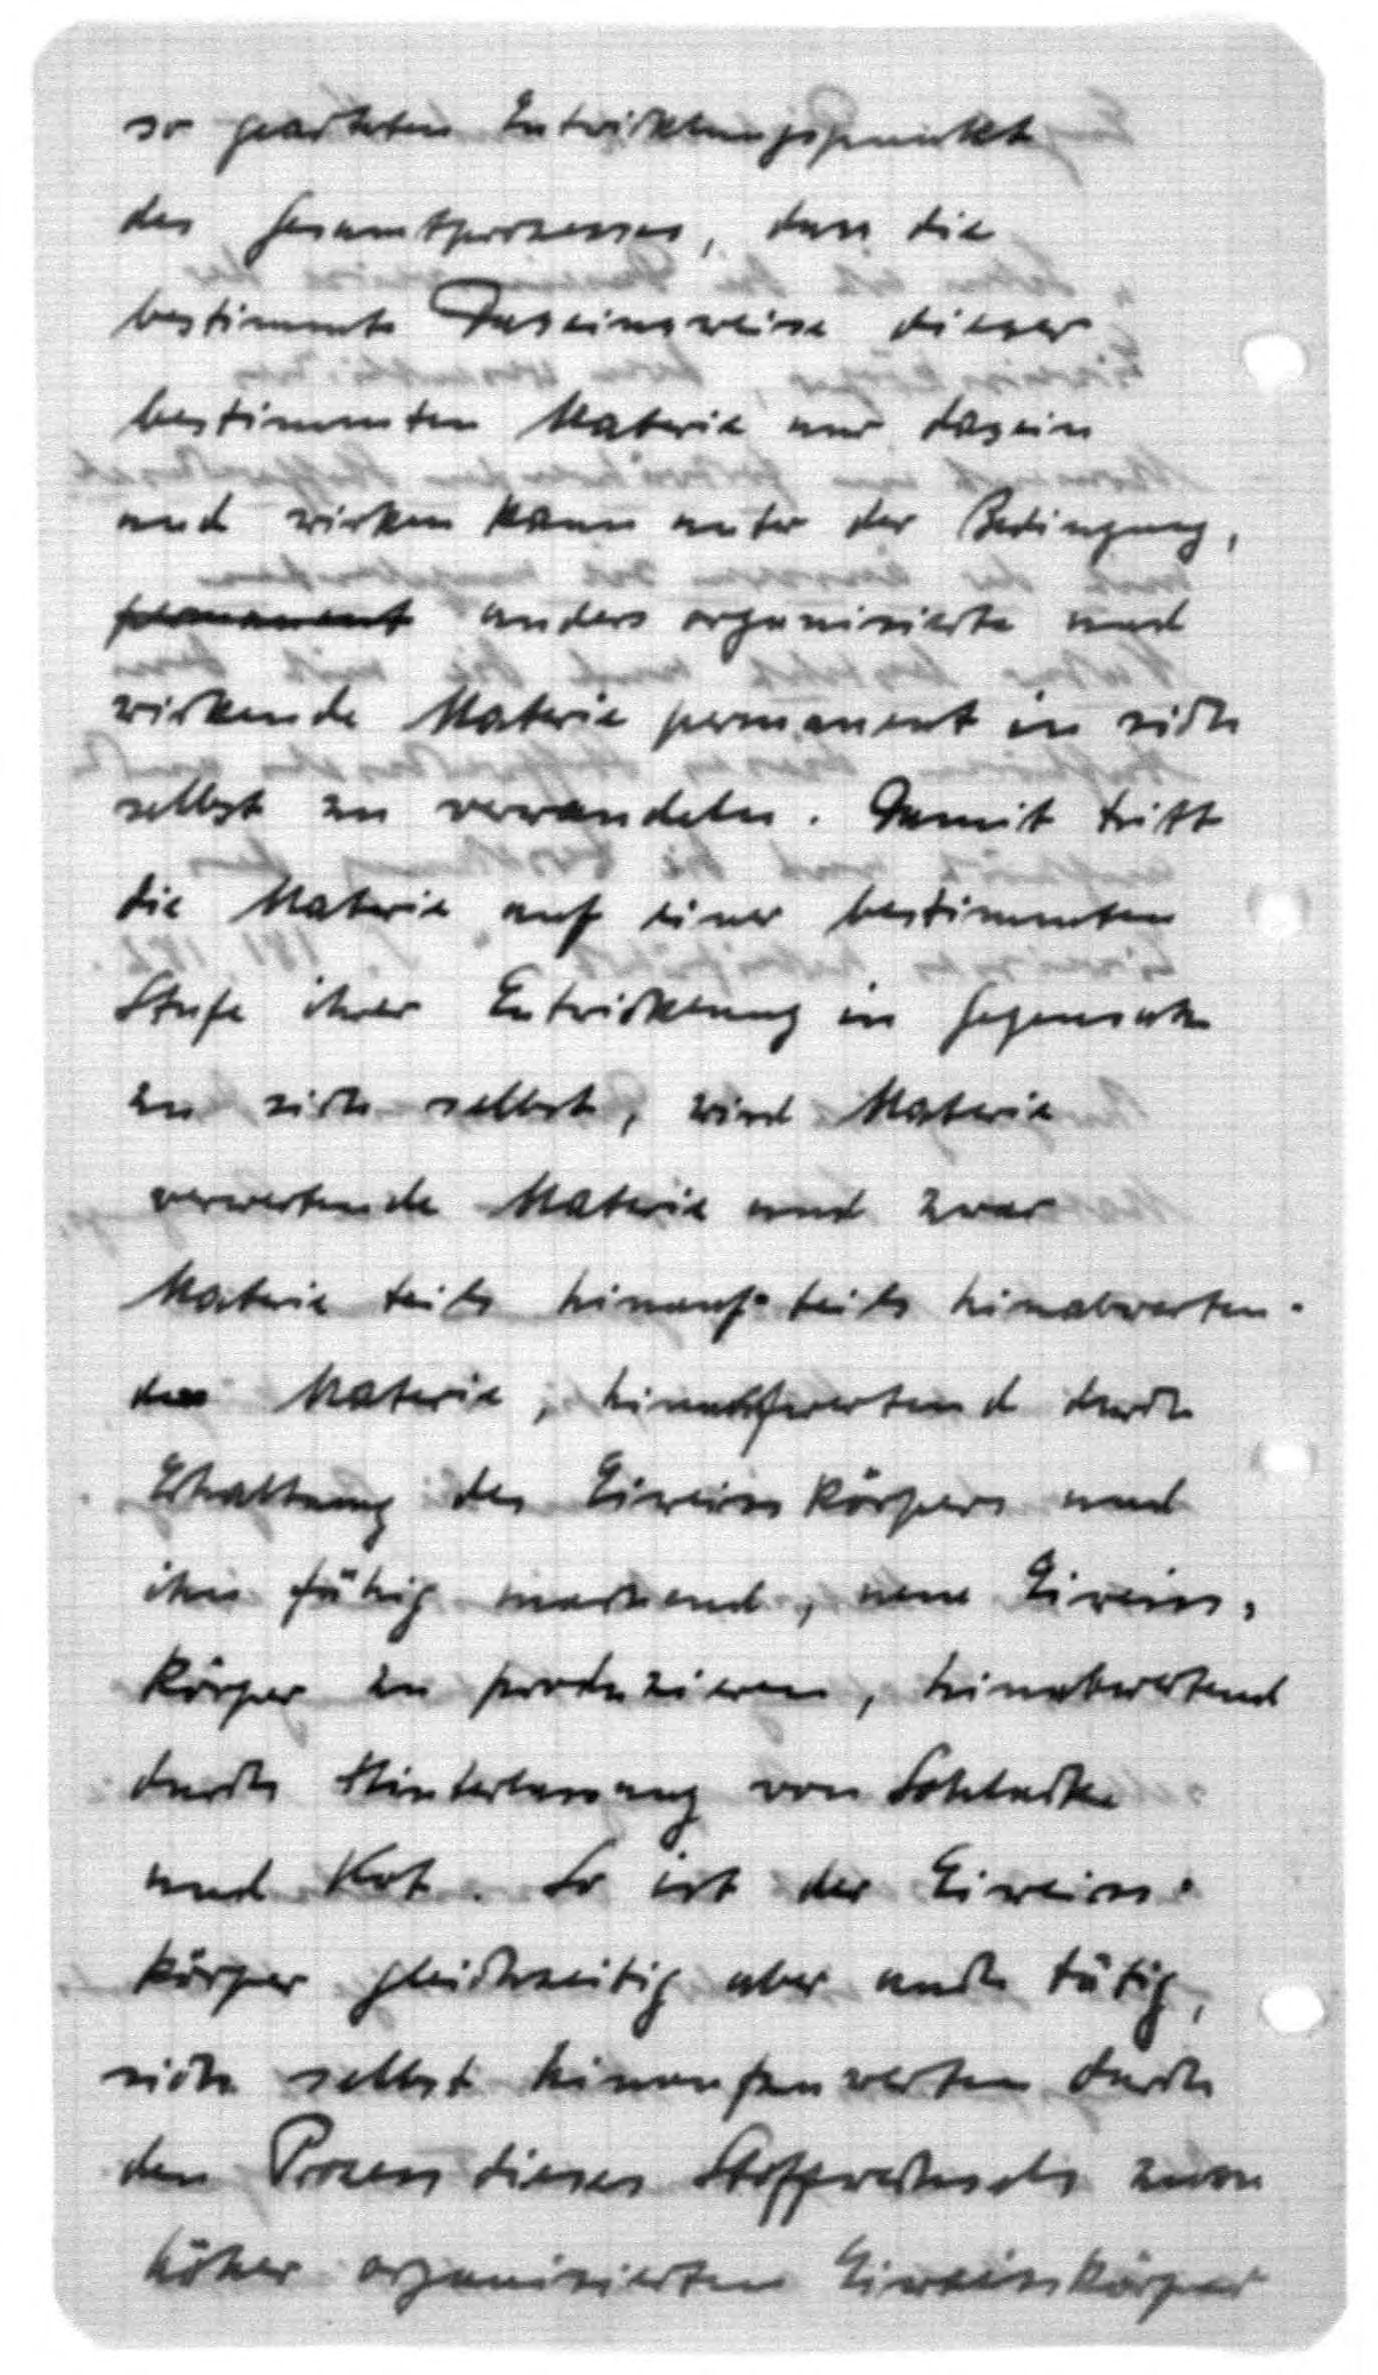 so gearteten Entwicklungspunkt
des Gesamtprozesses, dass die
bestimmte Daseinsweise dieser
bestimmten Materie nur dasein
und wirken kann unter der Bedingung,
permanent anders organisierte und
wirkende Materie permanent in sich
selbst zu verwandeln. Damit tritt
die Materie auf einer bestimmten
Stufe ihrer Entwicklung in Gegensatz
zu sich selbst, wird Materie
verwertende Materie und zwar
Materie teils hinauf- teils hinabwerten-
de Materie, hinaufwertend durch
Erhaltung des Eiweisskörpers und
ihn fähig machend, neue Eiweiss-
körper zu produzieren, hinabwertend
durch Hinterlassung von Schlacke
und Kot. So ist der Eiweiss-
körper gleichzeitig aber auch tätig,
sich selbst hinaufzuwerten durch
den Prozess dieses Stoffwechsels zum
höher organisierten Eiweisskörper